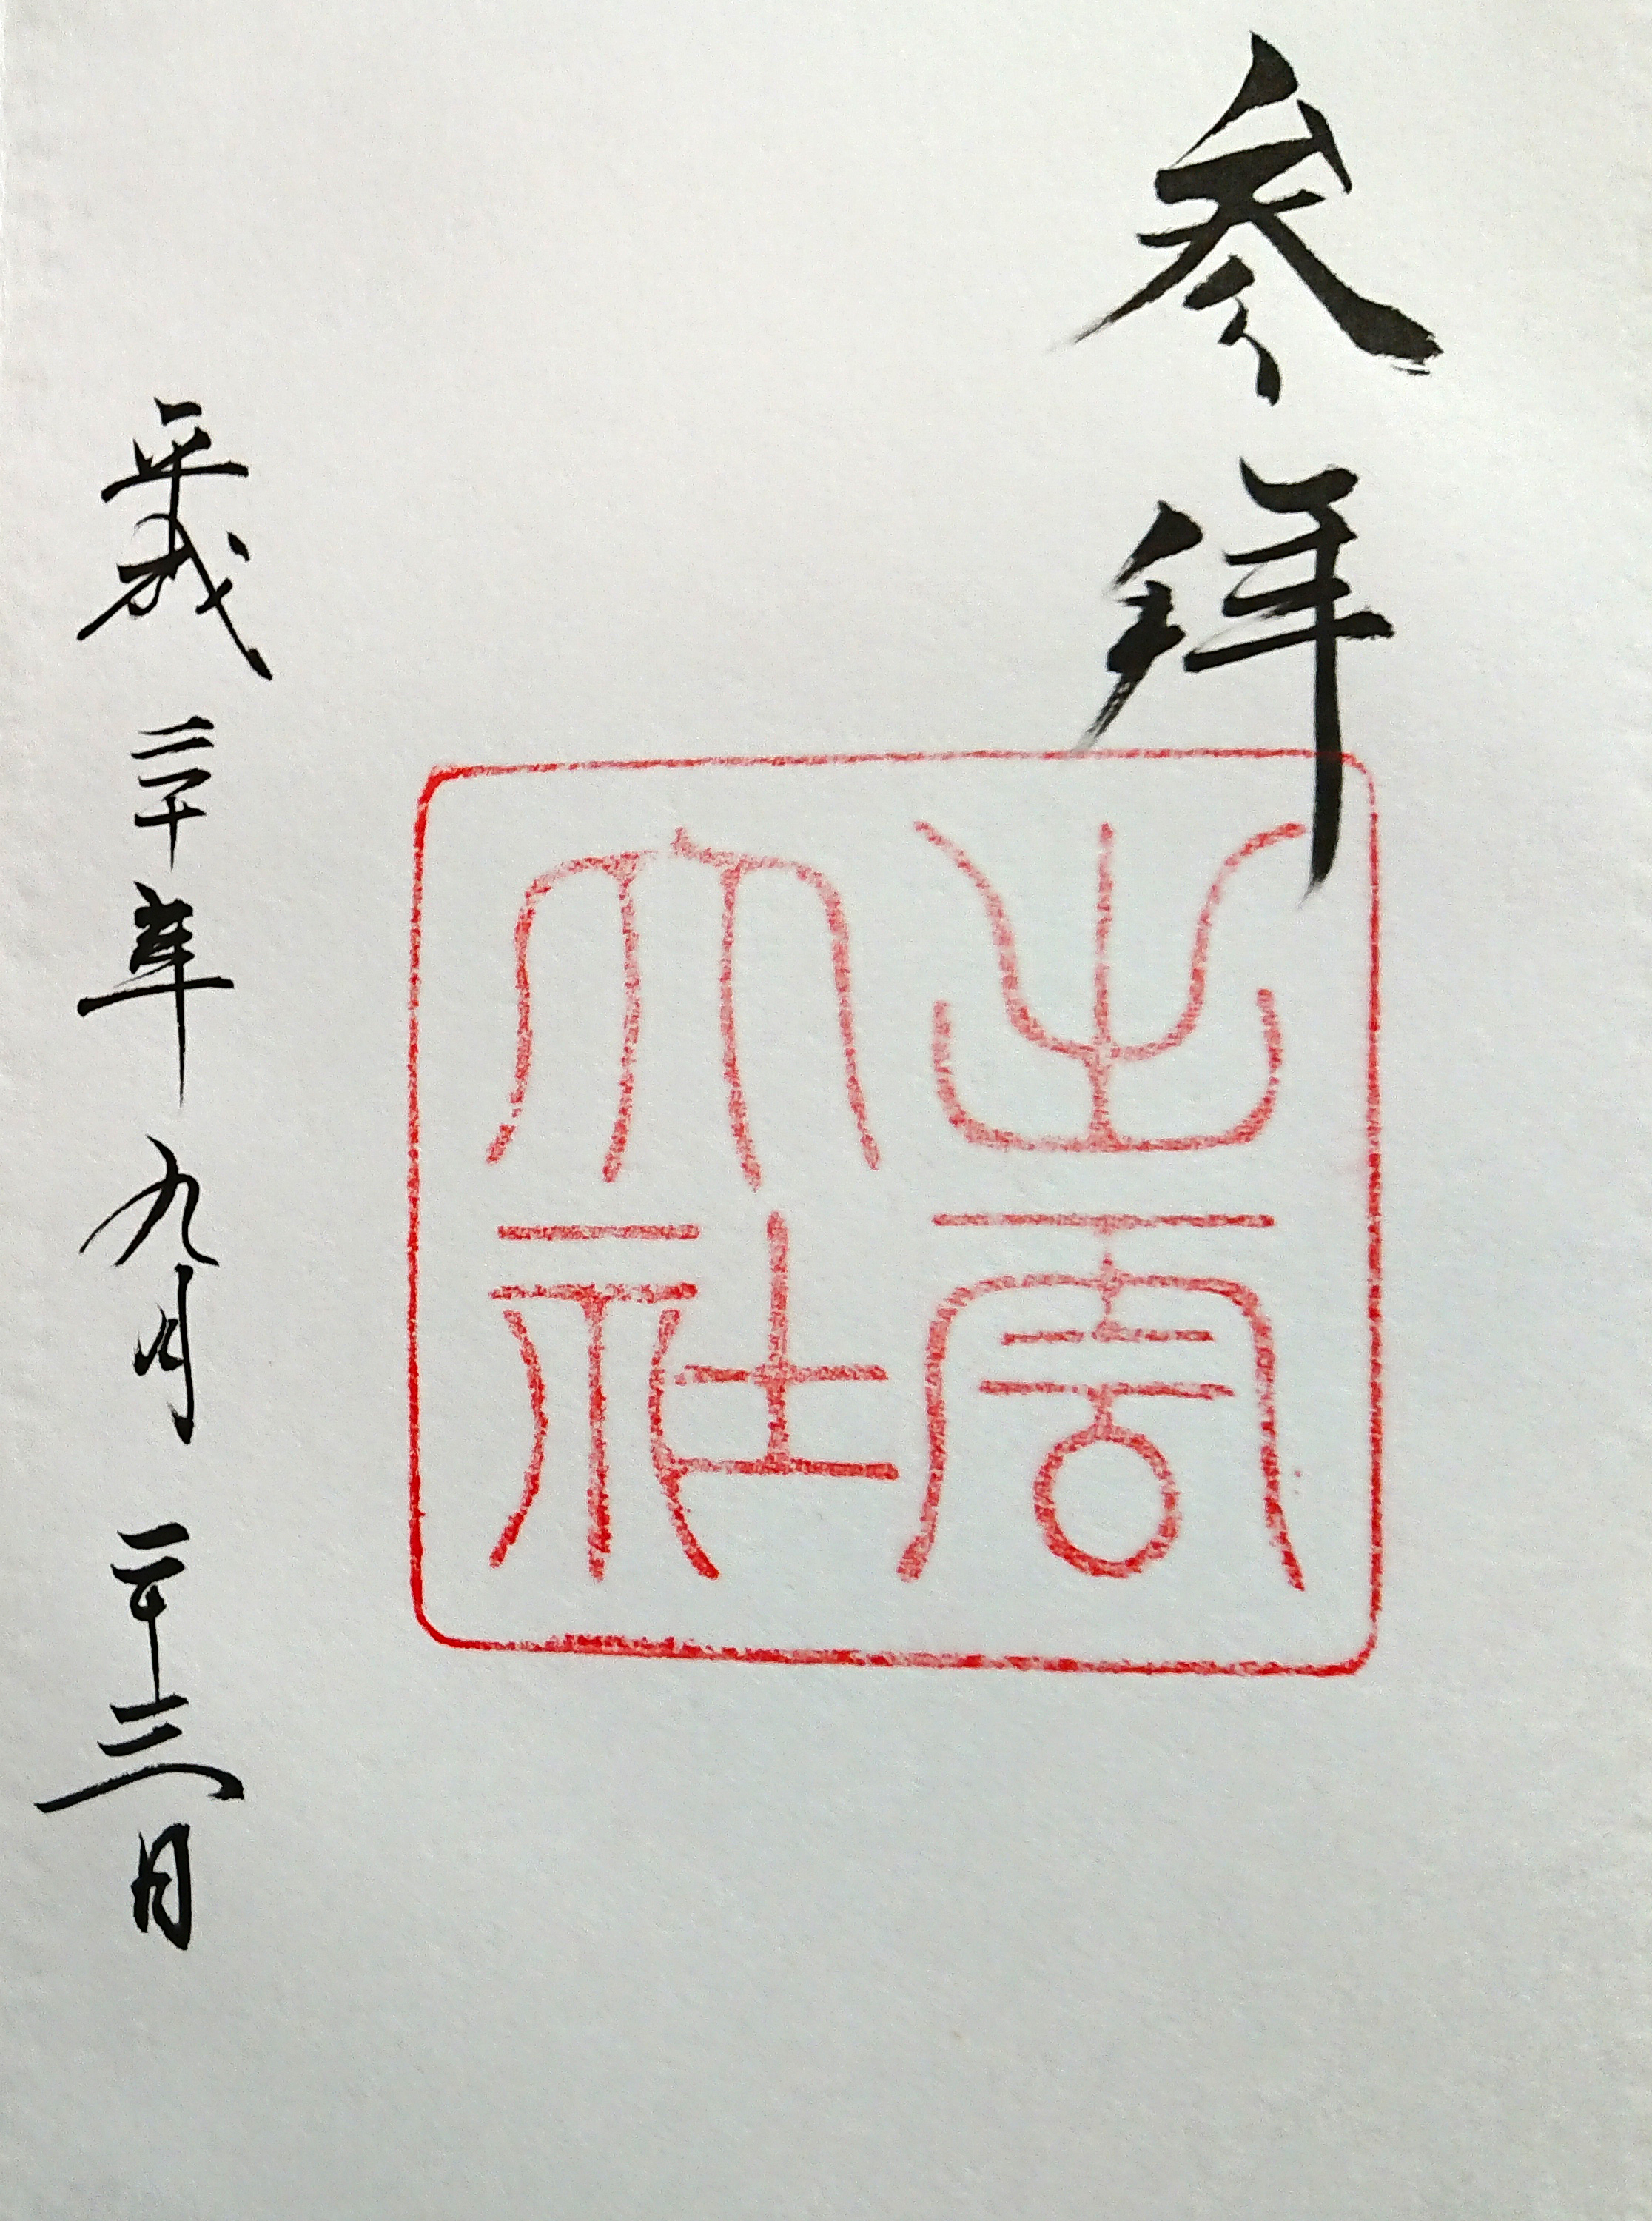 参拝
出雲
大社
平成三十年九月二十三日